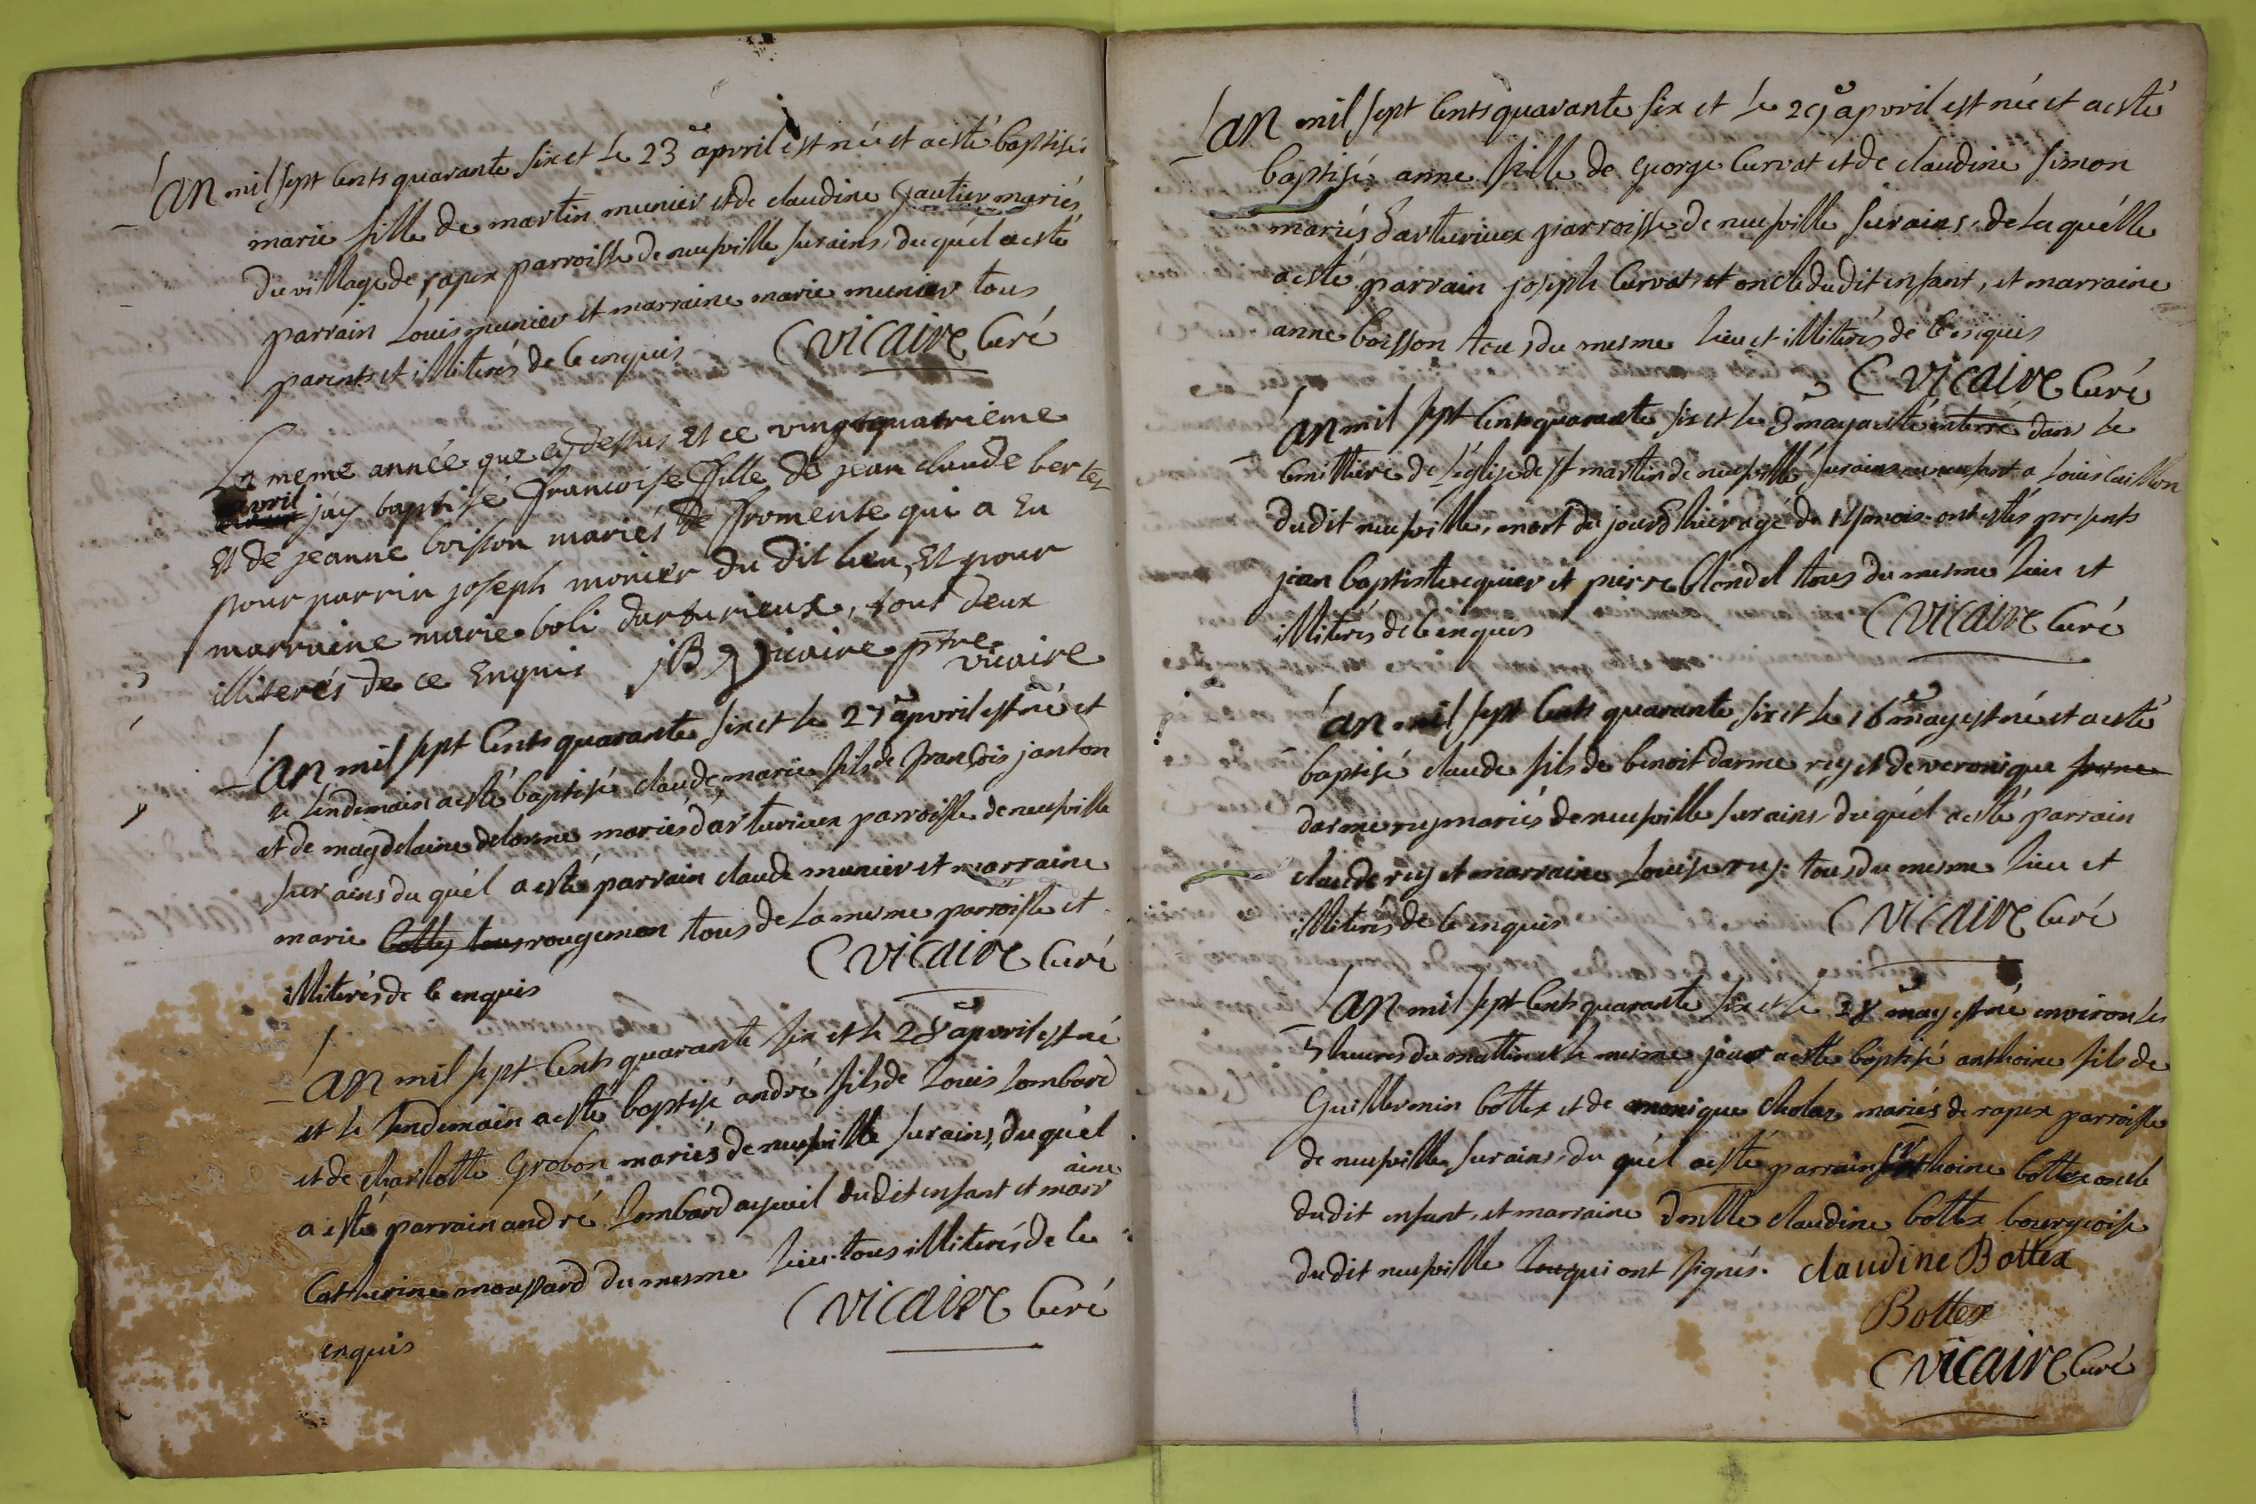 L'an mil sept cents quarante six et le 23e apvril est née et a esté baptisée
marie fille de martin munier et de claudine gautier mariés
du village de rapex parroisse de neufville sur ains, du quel a esté
parrain Louis munier et marraine marie munier tous
parents et illiterés de ce enquis C vicaire Curé
La meme année que cy dessus Et ce vingtquatrieme
avril jáy baptisé francoise fille de jean claude bertet
Et de jeanne boisson mariés de fromente qui a Eu
pour parrin joseph monier du dit lieu, Et pour
marraine marie boli darturieux, tout deux
illiterés de ce Enquis jB Vicaire ptre
vicaire
L'an mil sept cents quarante six et le 27e apvril est né et
le lendemain a esté baptisé claude marie fils de françois janton
et de magdelaine delorme mariés d'arturieux parroisse de neufville
sur ains du quel a esté parrain claude munier et marraine
marie rougemon tous de la mesme parroisse et
illiterés de ce enquis C vicaire Curé
L'an mil sept cents quarante six et le 28e apvril est né
et le lendemain a esté baptisé andré fils de Louis Lombard
et de charlotte Grobon mariés de neufville sur ains, du quel
a esté parrain andré Lombard ayeuil dudit enfant et marraine
Catherine moussard du mesme lieu tous illiterés de ce
enquis C vicaire Curé
L'an mil sept cents quarante six et le 29e apvril est née et a esté
baptisé anne fille de george Curvat et de claudine simon
mariés d'arturieux parroisse de neufville sur ains, de laquelle
a esté parrain joseph Curvat et oncle dudit enfant, et marraine
anne boisson tous du mesme lieu et illiterés de ce enquis
C vicaire Curé
L'an mil sept cents quarante six et le 3 may a esté enterré dans le
cemittiere de l'église de st martin de neufville sur ains un enfant a Louis Caillon
dudit neufville, mort du jour d'hier agé de mois ont estés presents
jean baptiste equier et pierre blondel tous du mesme lieu et
illiterés de ce enquis C vicaire Curé
L'an mil sept cents quarante six et le 16e may est né et a esté
baptisé claude fils de benoit darme rey et de veronique
darme rey mariés de neufville sur ains, du quel a esté parrain
claude rey et marraine Louise rey: tous du mesme lieu et
illiterés de ce enquis C vicaire Curé
L'an mil sept cents quarante six et le 28e may est né environ les
5 heures du mattin et le mesme jour a esté baptisé anthoine fils de
Guillermin bottex et de monique cholas mariés de rapex parroisse
de neufville sur ains, du quel a esté parrain sr anthoine bottex oncle
dudit enfant, et marraine Dmlle claudine bottex bourgeoise
dudit neufville qui ont signés. claudine Bottex
Bottex
C vicaire Curé